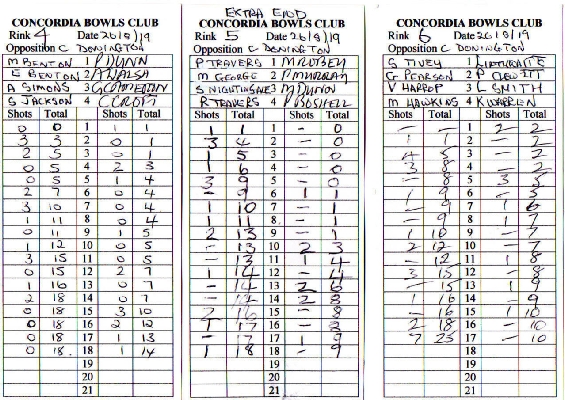 EXTRA END
CONCORDIA BOWLS CLUB
Rink 4 Date 26/8/19
Opposition C DONINGTON
M BENTON 1 P DUNN
E BENTON 2 A WALSH
A SIMONS 3
S JACKSON 4 C CROFT
Shots Total Shots Total
0 0 1 1 1
3 3 2 0 1
2 5 3 0 1
0 5 4 2 3
0 5 5 1 4
2 7 6 0 4
3 10 7 0 4
1 11 8 0 4
0 11 9 1 5
1 12 10 0 5
3 15 11 0 5
0 15 12 2 7
1 16 13 0 7
2 18 14 0 7
0 18 15 3 10
0 18 16 2 12
0 18 17 1 13
0 18 18 1 14
19
20
21
CONCORDIA BOWLS CLUB
Rink 5 Date 26/8/19
Opposition C DONINGTON
P TRAVERS 1
M GEORGE 2 P MURRAY
S NIGHTINGALE 3 M DUNN
R TRAVERS 4 P BOSWELL
Shots Total Shots Total
1 1 1 - 0
3 4 2 - 0
1 5 3 - 0
1 6 4 - 0
3 9 5 - 0
- 9 6 1 1
1 10 7 - 1
1 11 8 - 1
2 13 9 - 1
- 13 10 2 3
- 13 11 1 4
1 14 12 - 4
- 14 13 2 6
- 14 14 2 8
2 16 15 - 8
1 17 16 - 8
- 17 17 1 9
1 18 18 - 9
19
20
21
CONCORDIA BOWLS CLUB
Rink 6 Date 26/8/19
Opposition C DONINGTON
S TIVEY 1
G PEARSON 2 P
V HARROP 3 L SMITH
M HAWKINS 4 K WARREN
Shots Total Shots Total
- - 1 2 2
1 1 2 - 2
4 5 3 - 2
3 8 4 - 2
- 8 5 3 5
1 9 6 - 5
- 9 7 1 6
- 9 8 1 7
1 10 9 - 7
2 12 10 - 7
- 12 11 1 8
3 15 12 - 8
- 15 13 1 9
1 16 14 - 9
- 16 15 1 10
2 18 16 - 10
7 25 17 - 10
18
19
20
21